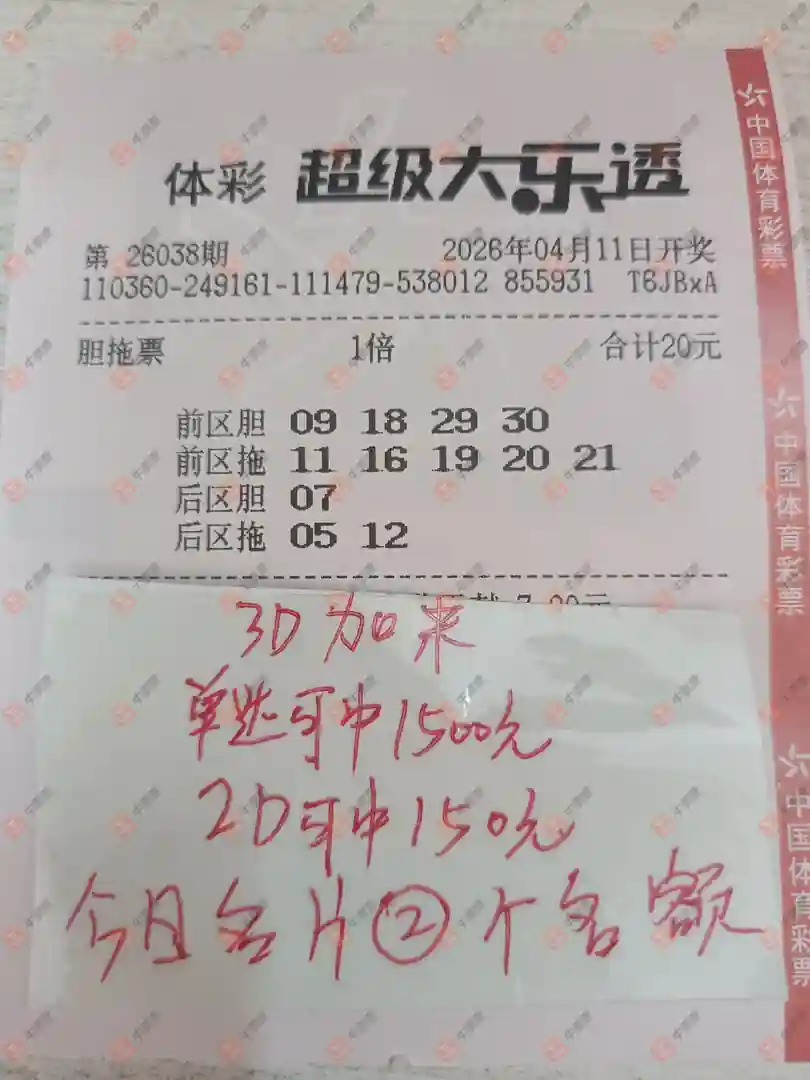 体彩 超级大乐透
第 26038期 2026年04月11日开奖
110360-249161-111479-538012 855931 T6JBxA
胆拖票 1倍 合计20元
前区胆 09 18 29 30
前区拖 11 16 19 20 21
后区胆 07
后区拖 05 12
3D加来
单选可中1500元
2D可中150元
今日名片②个名额
中国体育彩票
中国体育彩票
中国体育彩票